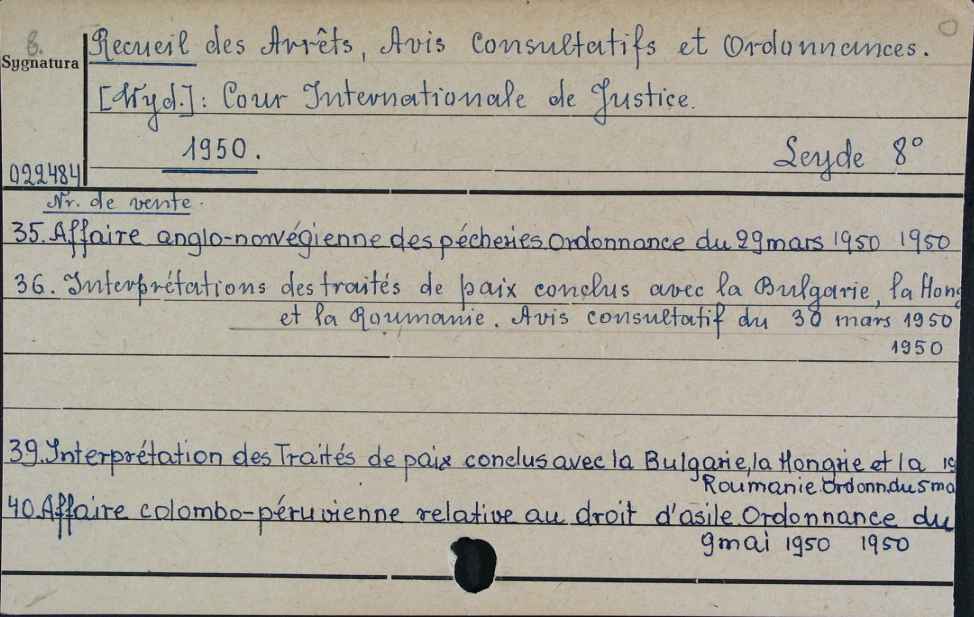 8.
Sygnatura
Recueil des Arrêts, Avis Consultatifs et Ordonnances.
[Wyd.]: Cour Internationale de Justice.
1950.
Leyde 8°
022484
Nr. de vente.
35. Affaire anglo-norvégienne des pécheries. Ordonnance du 29 mars 1950 1950
36. Interprétations des traités de paix conclus avec la Bulgarie, la Hong
et la Roumanie. Avis consultatif du 30 mars 1950
1950
39. Interprétation des Traités de paix conclus avec la Bulgarie, la Hongrie et la 19
Roumanie. Ordonn. du 5 ma
40. Affaire colombo-péruvienne relative au droit d'asile. Ordonnance du
9 mai 1950 1950